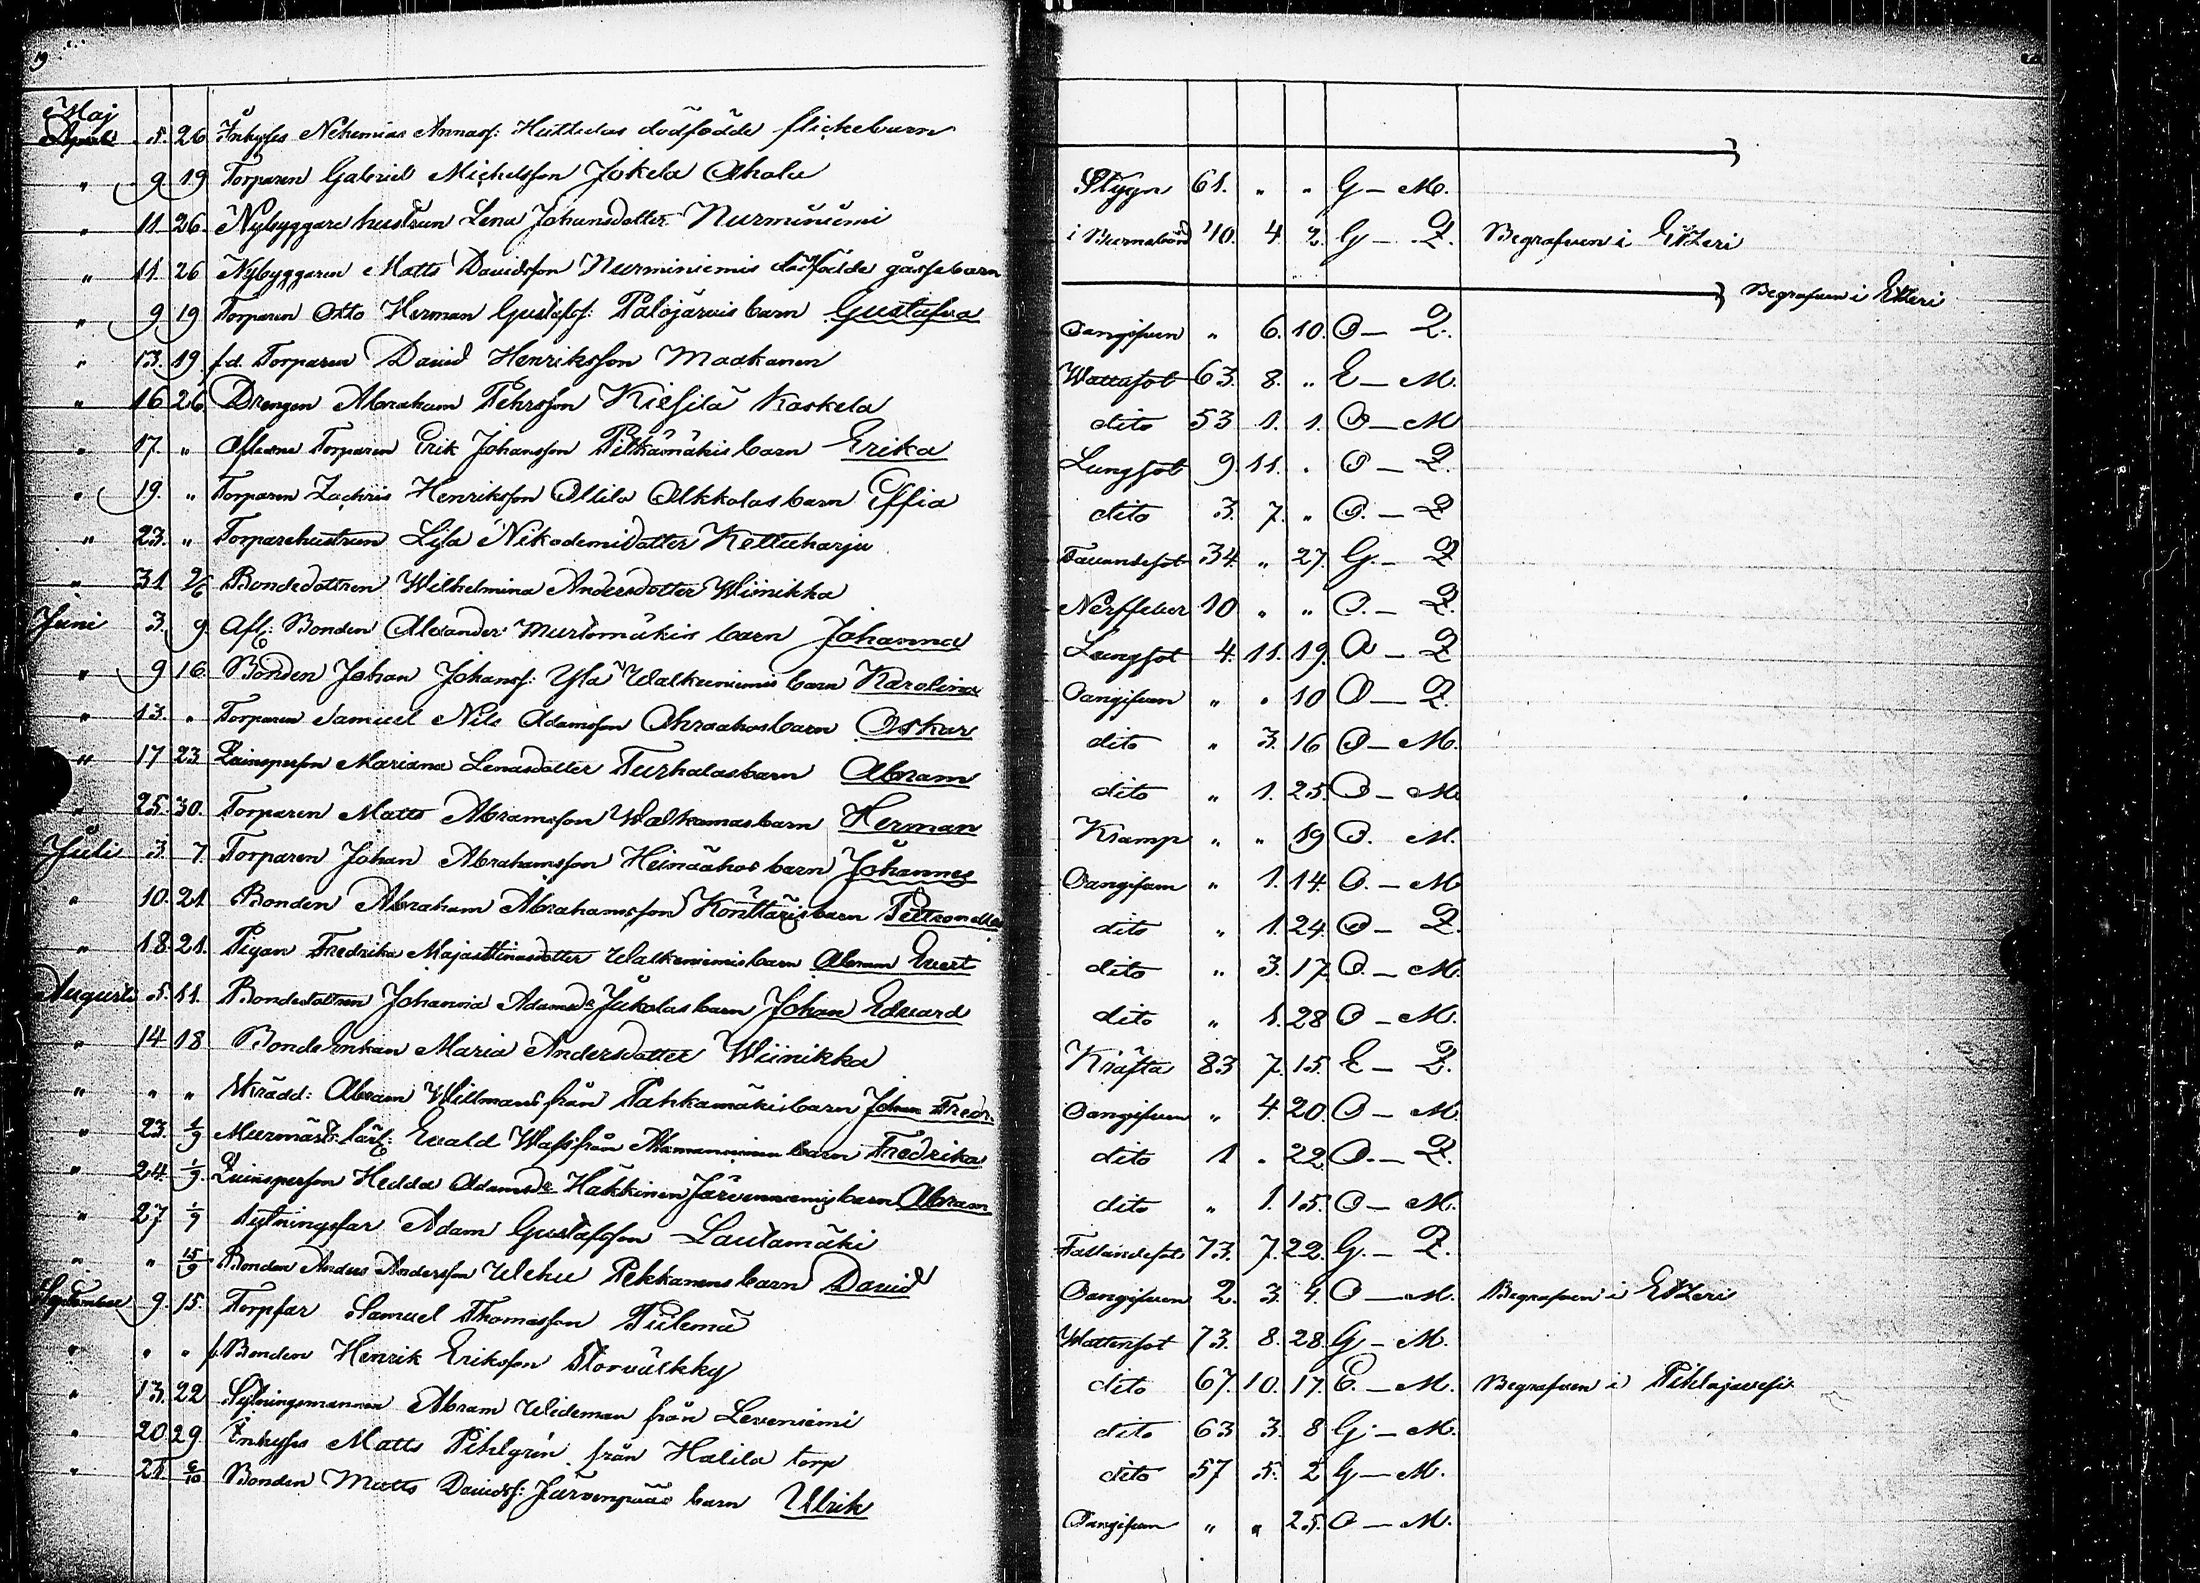 Maj
April 5. 26 Inhyses Nehemias Annasf: Huttulas dödfödde flickebarn
" 9. 19 Torparen Gabriel Michelsson Jokela Ahola Stygn 61. " " G – M.
" 11. 26. Nybyggare hustrun Lena Johansdotter Nurminiemi i Barnsbörd 40. 4. 2. G – Q. Begrafven i Etzeri
" 11. 26 Nybyggaren Matts Davidsson Nurminiemis dödfödde gåssebarn Begrafven i Etzeri
" 9 19 Torparen Otto Herman Gustafsf: Palojärvis barn Gustafva Oangifven " 6. 10. O – Q.
" 13. 19 f.d. Torparen David Henriksson Maakanen Wattusot 63. 8. " E – M.
" 16 26 Drengen Abraham Pehrsson Kiesilä Koskela dito 53 1. 1. O – M
" 17. " Aflidne Torparen Erik Johansson Pitkämäkis barn Erika Lungsot 9. 11. " O – Q.
" 19. " Torparen Zachris Henriksson Ollila Alkkolas barn Effia dito 3. 7. " O. – Q
" 23. " Torparehustrun Lisa Nikodemidotter Kettuharju 34. " 27. G. – Q
" 31 2/6 Bondedottren Wilhelmina Andersdotter Wiinikka Nerffeber 10 " " O. – Q.
Juni 3. 9. Afl: Bonden Alexander Murtomäkis barn Johanna Lungsot 4. 11. 19. O – Q
" 9 16. Bonden Johan Johansf: Ylä Walkeiniemis barn Karolina Oangifven " " 10 O – Q.
" 13. " Torparen Samuel Nils Adamsson Ohraahos barn Oskar dito " 3. 16 O – M.
" 17 23. Qvinsperson Mariana Lenasdotter Turhalas barn Abram dito " 1. 25. O – M
" 25. 30. Torparen Matts Abramsson Walkamas barn Herman Kramp " " 19 O. M.
Juli 3. 7. Torparen Johan Abrahamsson Heinäahos barn Johannes Oangifven " 1. 14. O. – M
" 10. 21. Bonden Abraham Abrahamsson Konttäris barn Petronella dito " 1. 24. O – Q.
" 18. 21. Pigan Fredrika Majastinasdotter Walkeniemis barn Abram Evert dito " 3. 17. O. – M.
Augusti 5. 11. Bondedottren Johanna Adamsdr Jukolas barn Johan Edvard dito " 1. 28 O – M.
" 14. 18 Bonde Enkan Maria Andersdotter Wiinikka Kräfta 83. 7. 15. E – Q.
" " " Skrädd: Abram Willmans från Pahkamäki barn Johan Fredr. Oangifven " 4. 20. O – M.
" 23. 1/9 Murmäst: lärl: Evald Wass från barn Fredrika dito 1 " 22 O. – Q.
" 24. 1/9. Qvinsperson Hedda Adamsdr Häkkinen Järvenniemis barn Abram dito " 1. 15. O – M.
" 27 1/9 Sytningsfar Adam Gustafsson Lautamäki Fallandesot 73. 7. 22. G. – Q.
" " 15/9 Bonden Anders Andersson Wehu Pekkanens barn David Oangifven 2. 3. 4. O – M. Begrafven i Etzeri
September 9. 15. Torpfar Samuel Thomasson Piilemä Wattusot 73. 8. 28. G – M.
" " " f. Bonden Henrik Eriksson Storvälkky dito 67. 10. 17. E. – M. Begrafven i Pihlajavesi
" 13. 22 Sytningsmannen Abram Wideman från Leveniemi dito 63 3. 8 G – M.
" 20. 29 Inhyses Matts Pihlgren från Halila torp dito 57 5. 2 G – M.
" 25 6/10 Bonden Matts Davidsf: Järvenpääs barn Ulrik Oangifven " " 25. O – M.